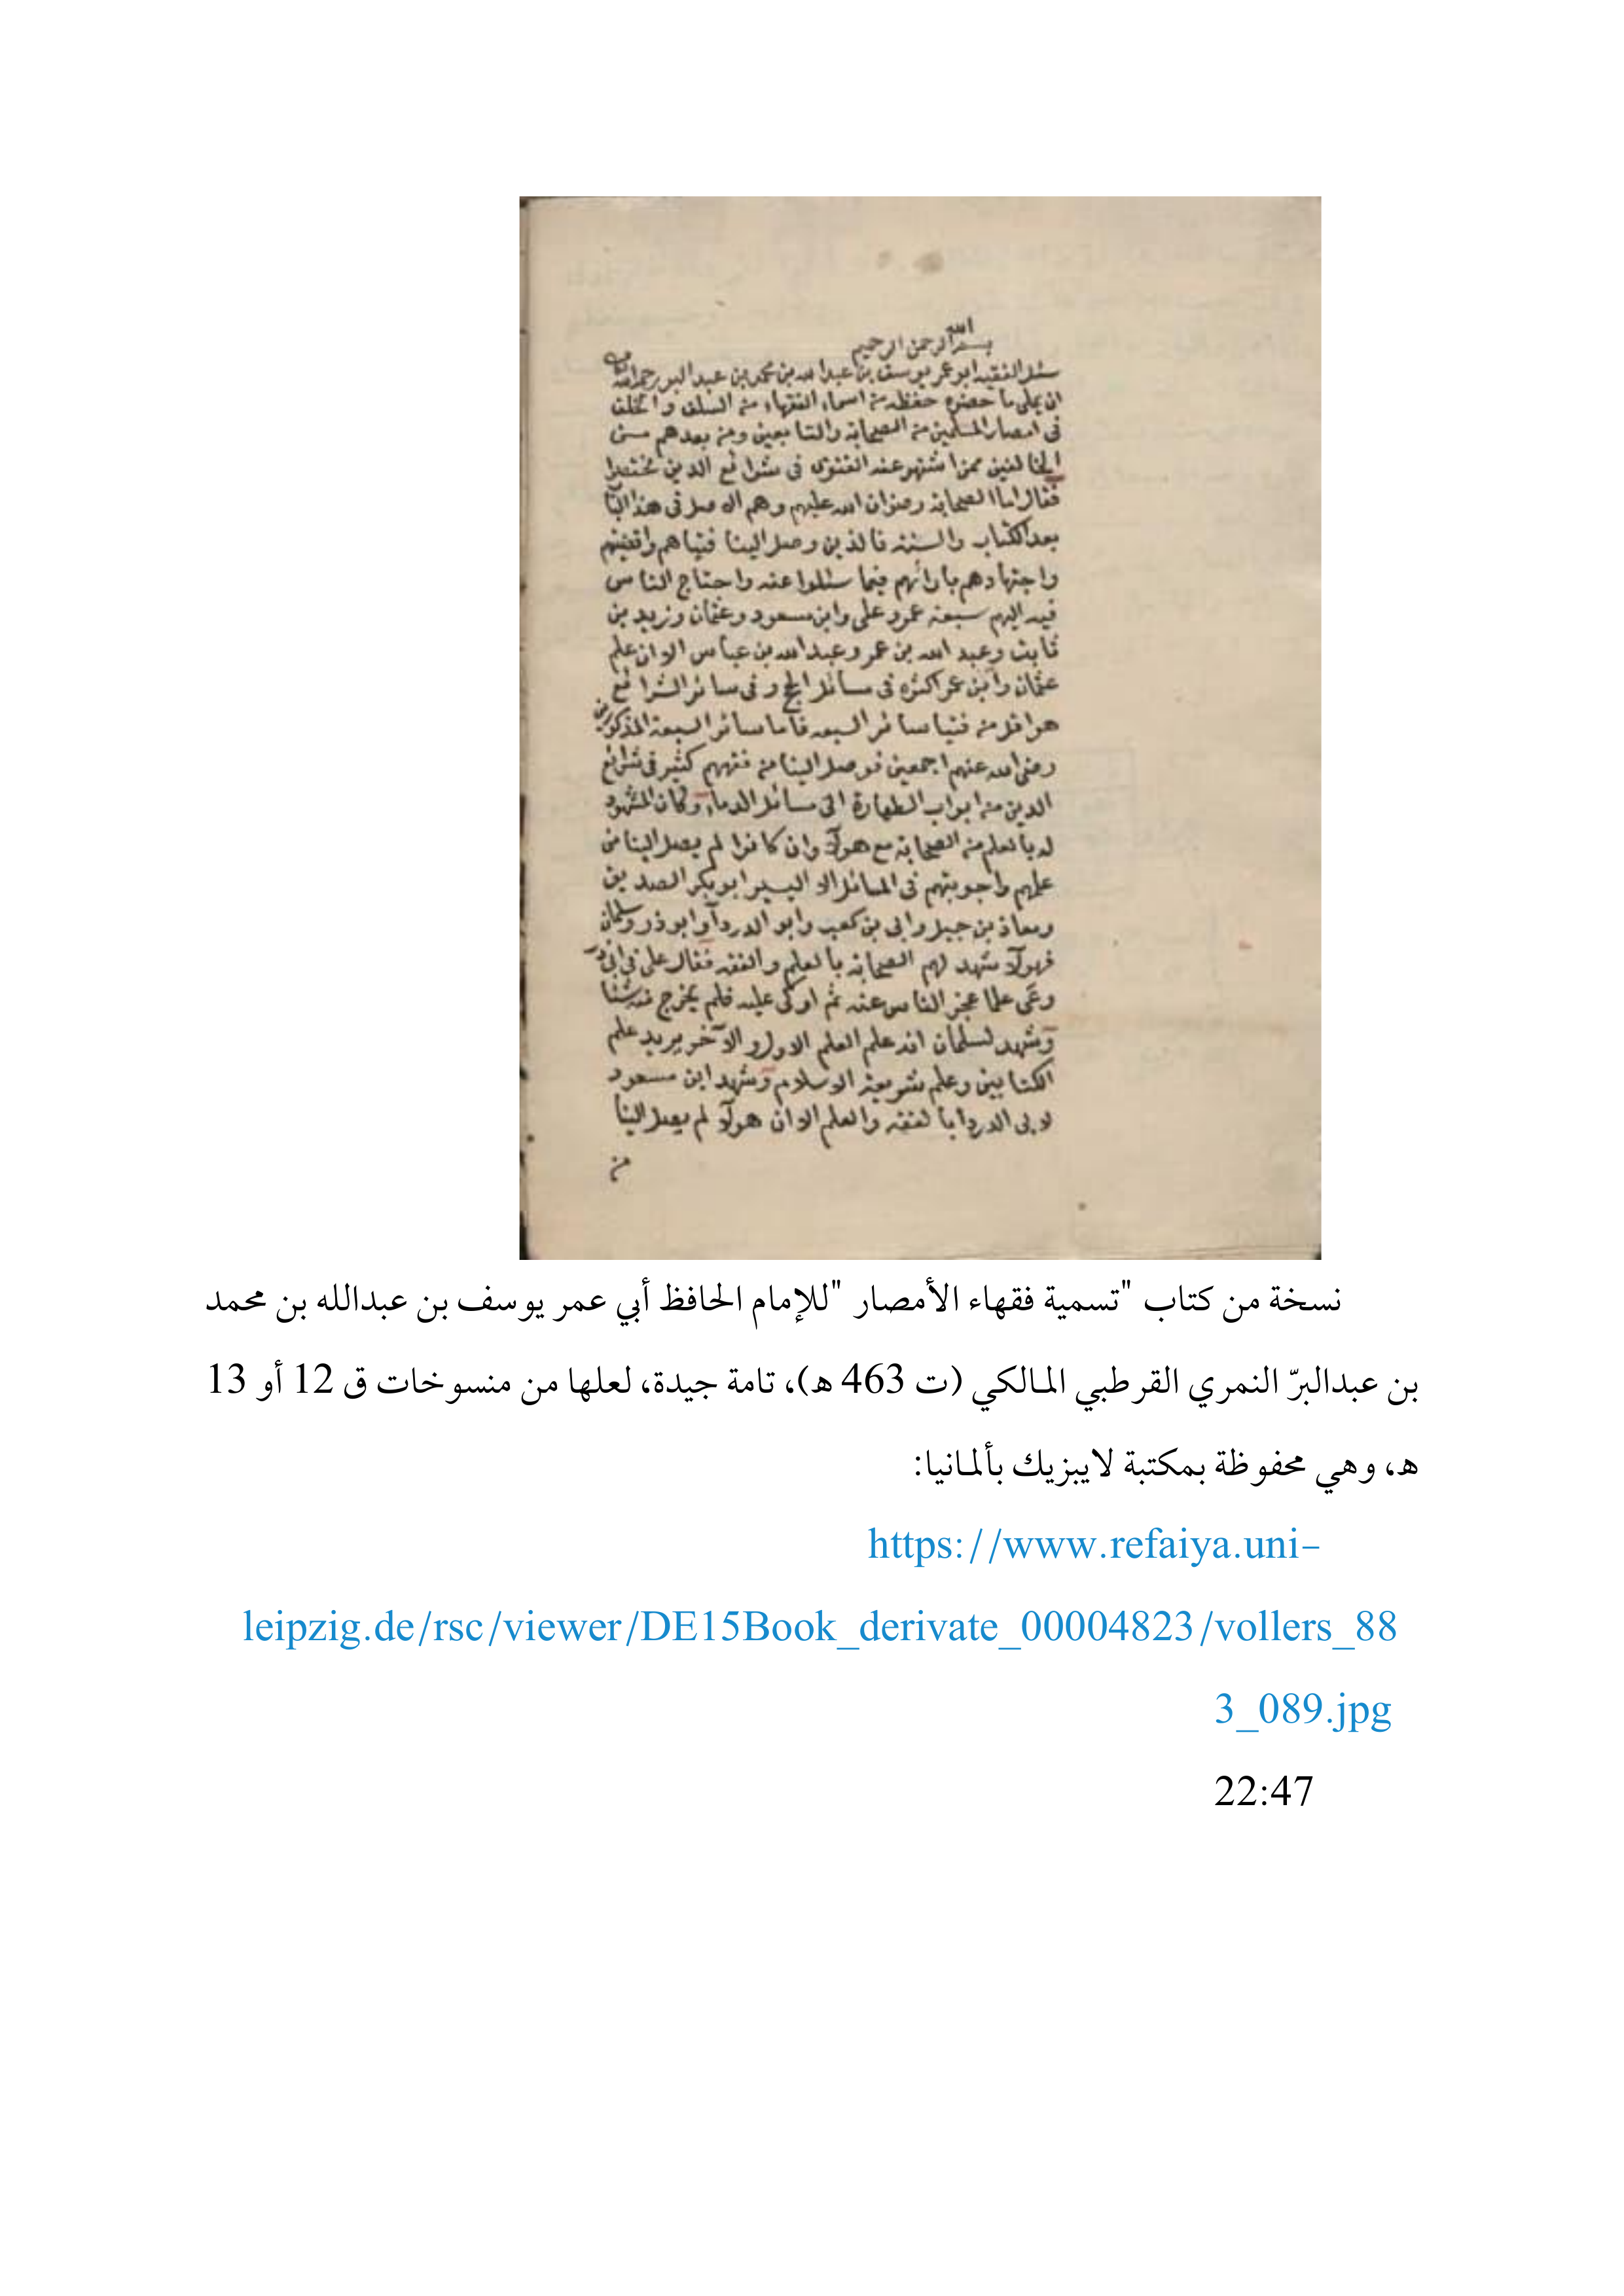 بسم الله الرحمن الرحيم
سئل الفقيه ابو عمر يوسف بن عبد الله بن محمد بن عبد البر رحمه الله
ان يملى ما حضره حفظه من اسماء الفقهاء من السلف والخلف
فى امصار المسلمين من الصحابة والتابعين ومن بعدهم من
الخالفين ممن اشتهر عنه الفتوى فى شرائع الدين مختصرا
فقال اما الصحابة رضوان الله عليهم وهم الاصل فى هذا البا
بعد الكتاب والسنة فالذين وصل الينا فتياهم واقضيتهم
واجتهادهم بارائهم فيما سئلوا عنه واحتاج الناس
فيه اليهم سبعة عمر وعلى وابن مسعود وعثمان وزيد بن
ثابت وعبد الله بن عمر وعبد الله بن عباس الا ان علم
عثمان وابن عمر اكثره فى مسائل الحج و فى سائر الشرائع
هو اقل من فتيا سائر السبعه فاما سائر السبعة المذكورين
رضى الله عنهم اجمعين فوصل الينا من فقههم كثير فى شرائع
الدين من ابواب الطهارة الى مسائل الدماء وكان المشهود
له بالعلم من الصحابة مع هولآ وان كانوا لم يصل الينا من
علمهم واجوبتهم فى المسائل الا اليسير ابو بكر الصديق
ومعاذ بن جبل وابى بن كعب وابو الدردآ وابو ذر وسلمان
فهولآ شهد لهم الصحابة بالعلم والفقه فقال على فى ابى ذر
وعى علما عجز الناس عنه ثم اوكى عليه فلم يخرج منه شئا
وشهد لسلمان انه علم العلم الاول و الآخر يريد علم
الكتابين وعلم شريعة الاسلام وشهد ابن مسعود
لابى الدردا بالفقه والعلم الا ان هولآ لم يصل الينا
من
نسخة من كتاب "تسمية فقهاء الأمصار "للإمام الحافظ أبي عمر يوسف بن عبدالله بن محمد
بن عبدالبرّ النمري القرطبي المالكي (ت 463 ه)، تامة جيدة، لعلها من منسوخات ق 12 أو 13
ه، وهي محفوظة بمكتبة لايبزيك بألمانيا:
https://www.refaiya.uni-
leipzig.de/rsc/viewer/DE15Book_derivate_00004823/vollers_88
3_089.jpg
22:47